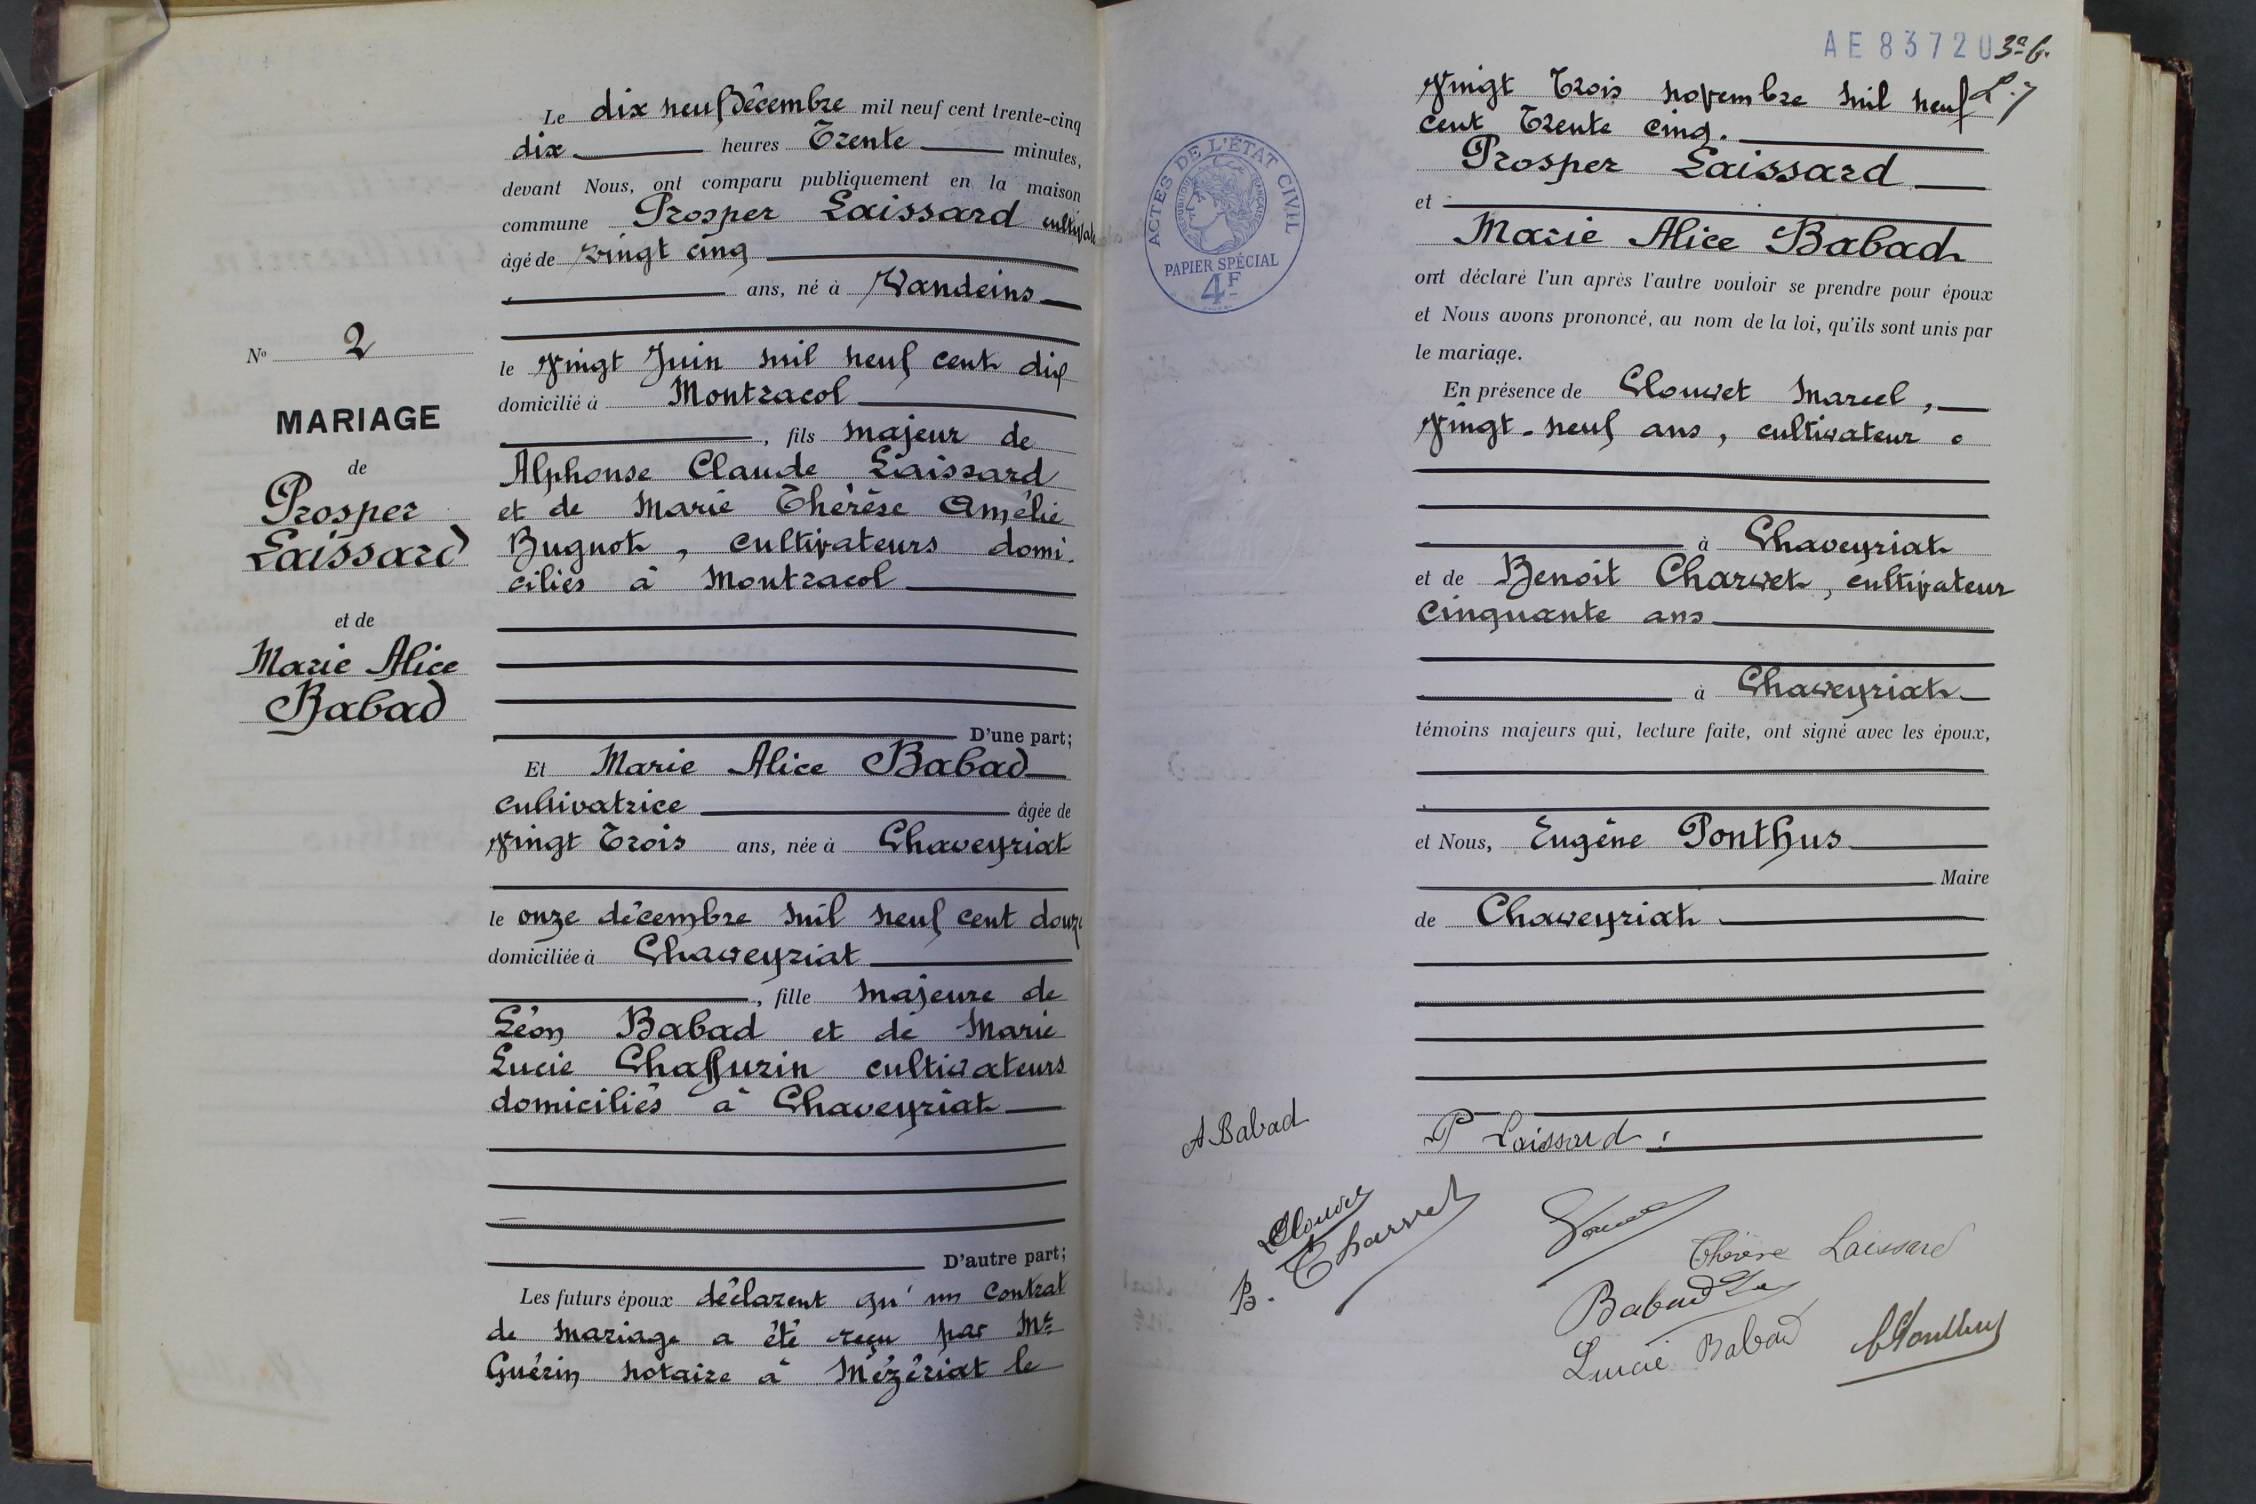 Le dix neuf Décembre mil neuf cent trente-cinq
dix heures Trente minutes,
devant Nous, ont comparu publiquement en la maison
commune Prosper Laissard
âgé de vingt cinq
ans, né à Vandeins
N° 2
le vingt Juin mil neuf cent dix
domicilié à Montracol
MARIAGE
, fils majeur de
de
Alphonse Claude Laissard
Prosper
et de Marie Thérèse Amélie
Laissard
Bugnot, cultivateurs domi-
ciliés à Montracol
et de
Marie Alice
Babad
D'une part;
Et Marie Alice Babad
cultivatrice âgée de
vingt Trois ans, née à Chaveyriat
le onze décembre mil neuf cent douze
domiciliée à Chaveyriat
, fille majeure de
Léon Babad et de Marie
Lucie Chaffurin cultivateurs
domiciliés à Chaveyriat
D'autre part;
Les futurs époux déclarent qu'un contrat
de mariage a été reçu par Me
Guérin notaire à Mézériat le
AE 83720
vingt Trois novembre mil neuf
cent Trente cinq.
Prosper Laissard
et
Marie Alice Babad
ACTES DE L'ÉTAT CIVIL
RÉPUBLIQUE FRANÇAISE
PAPIER SPÉCIAL
4F
ont déclaré l'un après l'autre vouloir se prendre pour époux
et Nous avons prononcé, au nom de la loi, qu'ils sont unis par
le mariage.
En présence de Clouvet Marcel,
vingt-neuf ans, cultivateur
à Chaveyriat
et de Benoit Charvet, cultivateur
cinquante ans
à Chaveyriat
témoins majeurs qui, lecture faite, ont signé avec les époux,
et Nous, Eugène Ponthus
Maire
de Chaveyriat
A Babad
P Laissard
Clouvet
B. Charvet
Thérèse Laissard
Babad
Lucie Babad
Ponthus